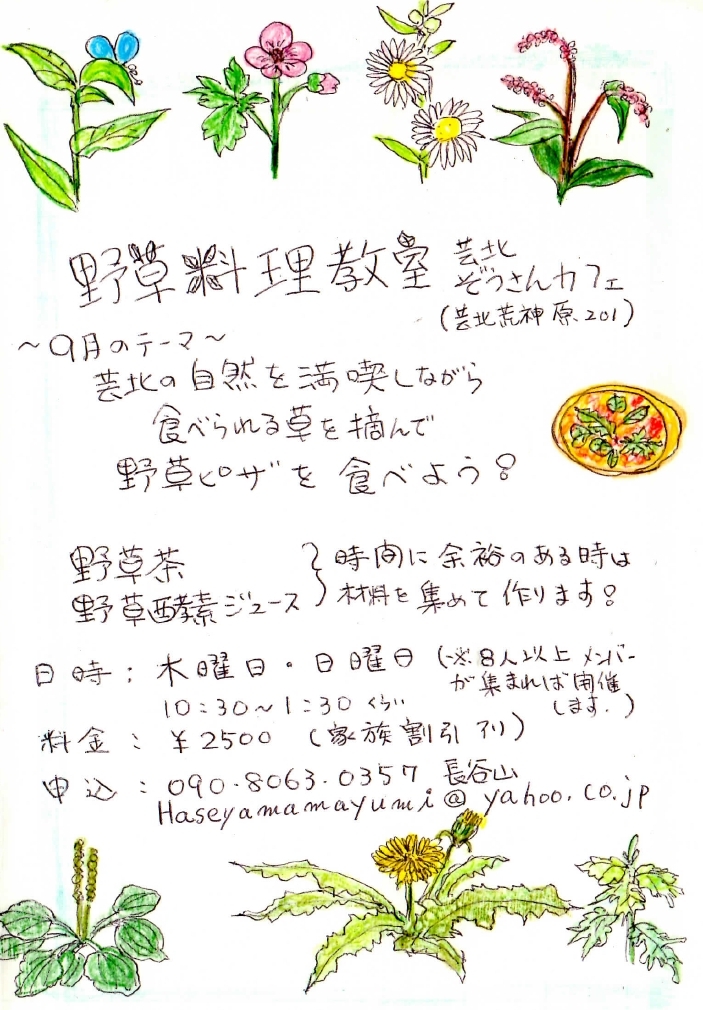 野草料理教室
芸北
ぞうさんカフェ
(芸北荒神原201)
～9月のテーマ～
芸北の自然を満喫しながら
食べられる草を摘んで
野草ピザを食べよう!
野草茶
野草酵素ジュース
時間に余裕のある時は
材料を集めて作ります!
日時：木曜日・日曜日
(※8人以上メンバー
が集まれば開催
します.)
10:30～1:30くらい
料金：￥2500 (家族割引アリ)
申込：090.8063.0357 長谷山
Haseyamamayumi@yahoo.co.jp